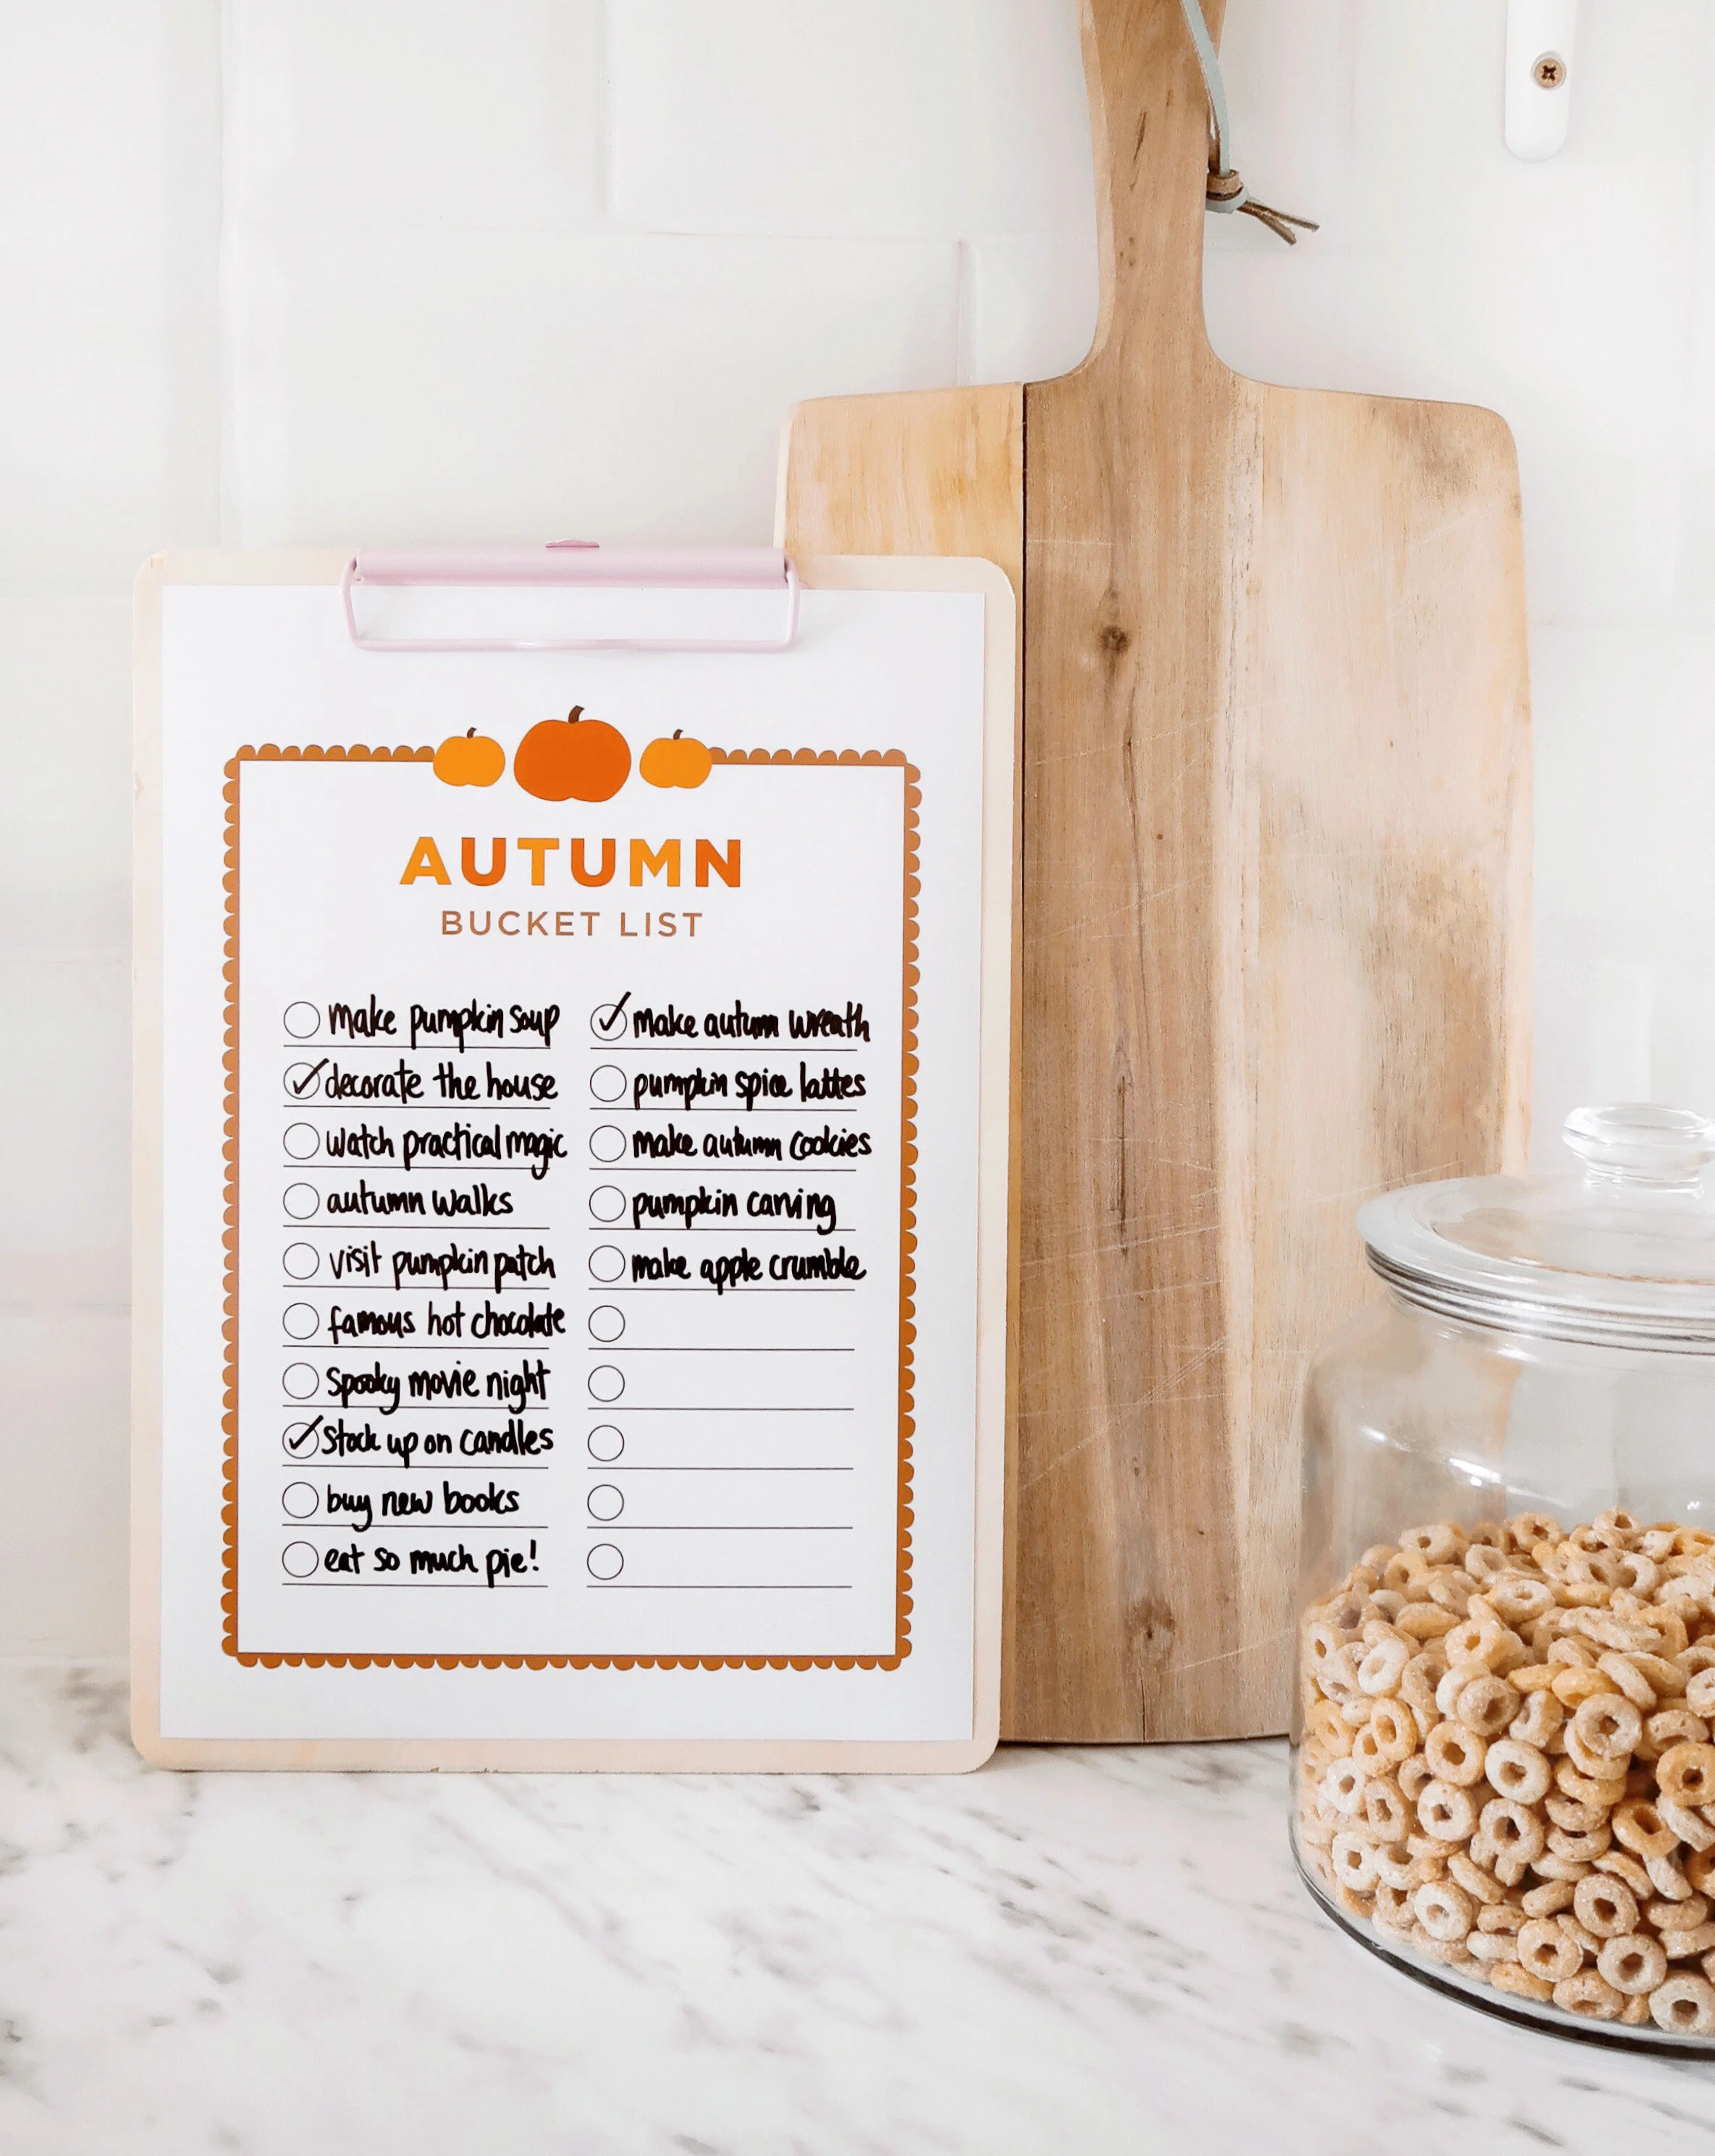 AUTUMN
BUCKET LIST
make pumpkin soup
decorate the house
watch practical magic
autumn walks
visit pumpkin patch
famous hot chocolate
spooky movie night
stock up on candles
buy new books
eat so much pie!
make autumn wreath
pumpkin spice lattes
make autumn cookies
pumpkin carving
make apple crumble